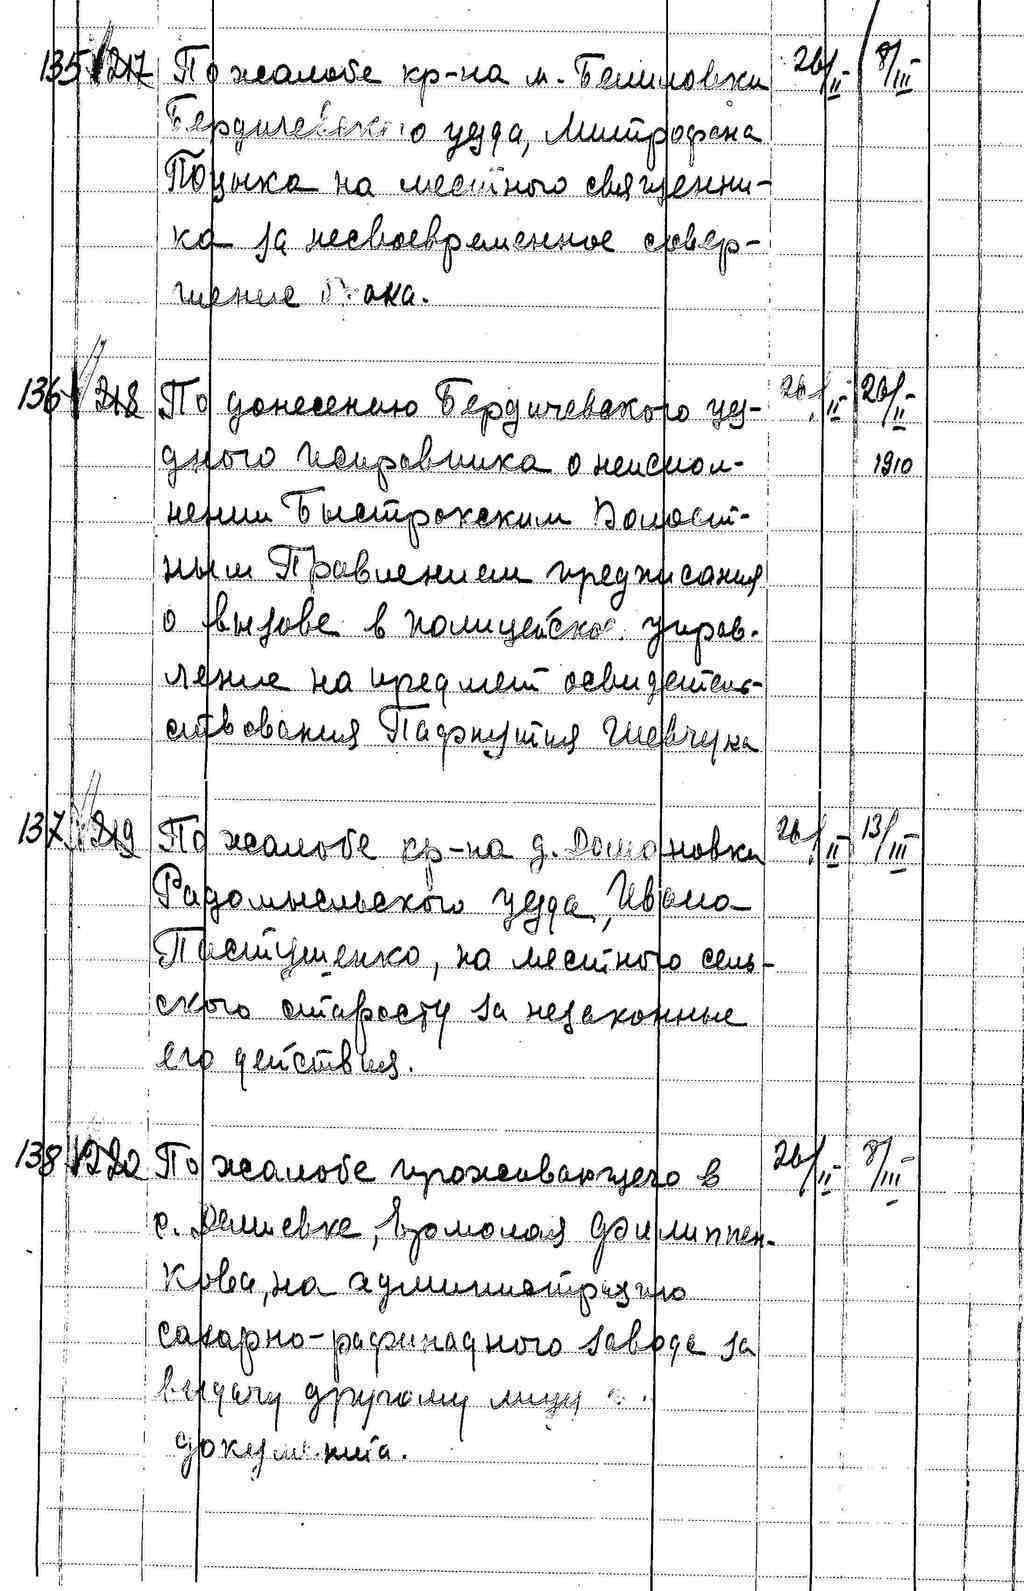 135 217 По жалобе кр-на м. Белиловки 26/II 8/III
Бердичевского уезда, Митрофана
Поцыка на местного священни-
ка за несвоевременное совер-
шение брака.
136 218 По донесению Бердичевского уез- 26/II 26/II
дного исправника о неиспол- 1910
нении Быстрикским Волост-
ным Правлением предписания
о вызове в полицейское управ-
ление на предмет освидетель-
ствования Пафнутия Шевчука
137 219 По жалобе кр-на д. 26/II 13/III
Радомысльского уезда, Ивана
Пастушенко, на местного сель-
ского старосту за незаконные
его действия.
138 220 По жалобе проживающего в 26/II 8/III
с. Дешевке, Ермолая Филиппен-
кова, на администрацию
сахарно-рафинадного завода за
выдачу другому лицу
документа.